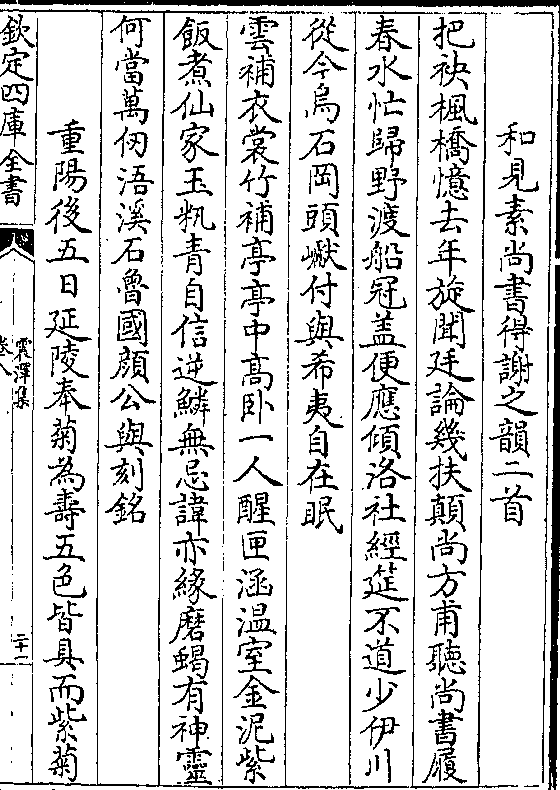 和見素尚書得謝之韻二首
把袂楓橋憶去年旋聞廷論幾扶顛尚方甫聽尚書履
春水忙歸野渡船冠盖便應傾洛社經筵不道少伊川
從今烏石岡頭巘付與希夷自在眠
雲補衣裳竹補亭亭中髙卧一人醒匣涵温室金泥紫
飯煮仙家玉籸青自信逆鱗無忌諱亦緣磨蝎有神靈
何當萬仞浯溪石魯國顔公與刻銘
重陽後五日延陵奉菊為壽五色皆具而紫菊
欽定四庫全書
震澤集
卷八
二十一